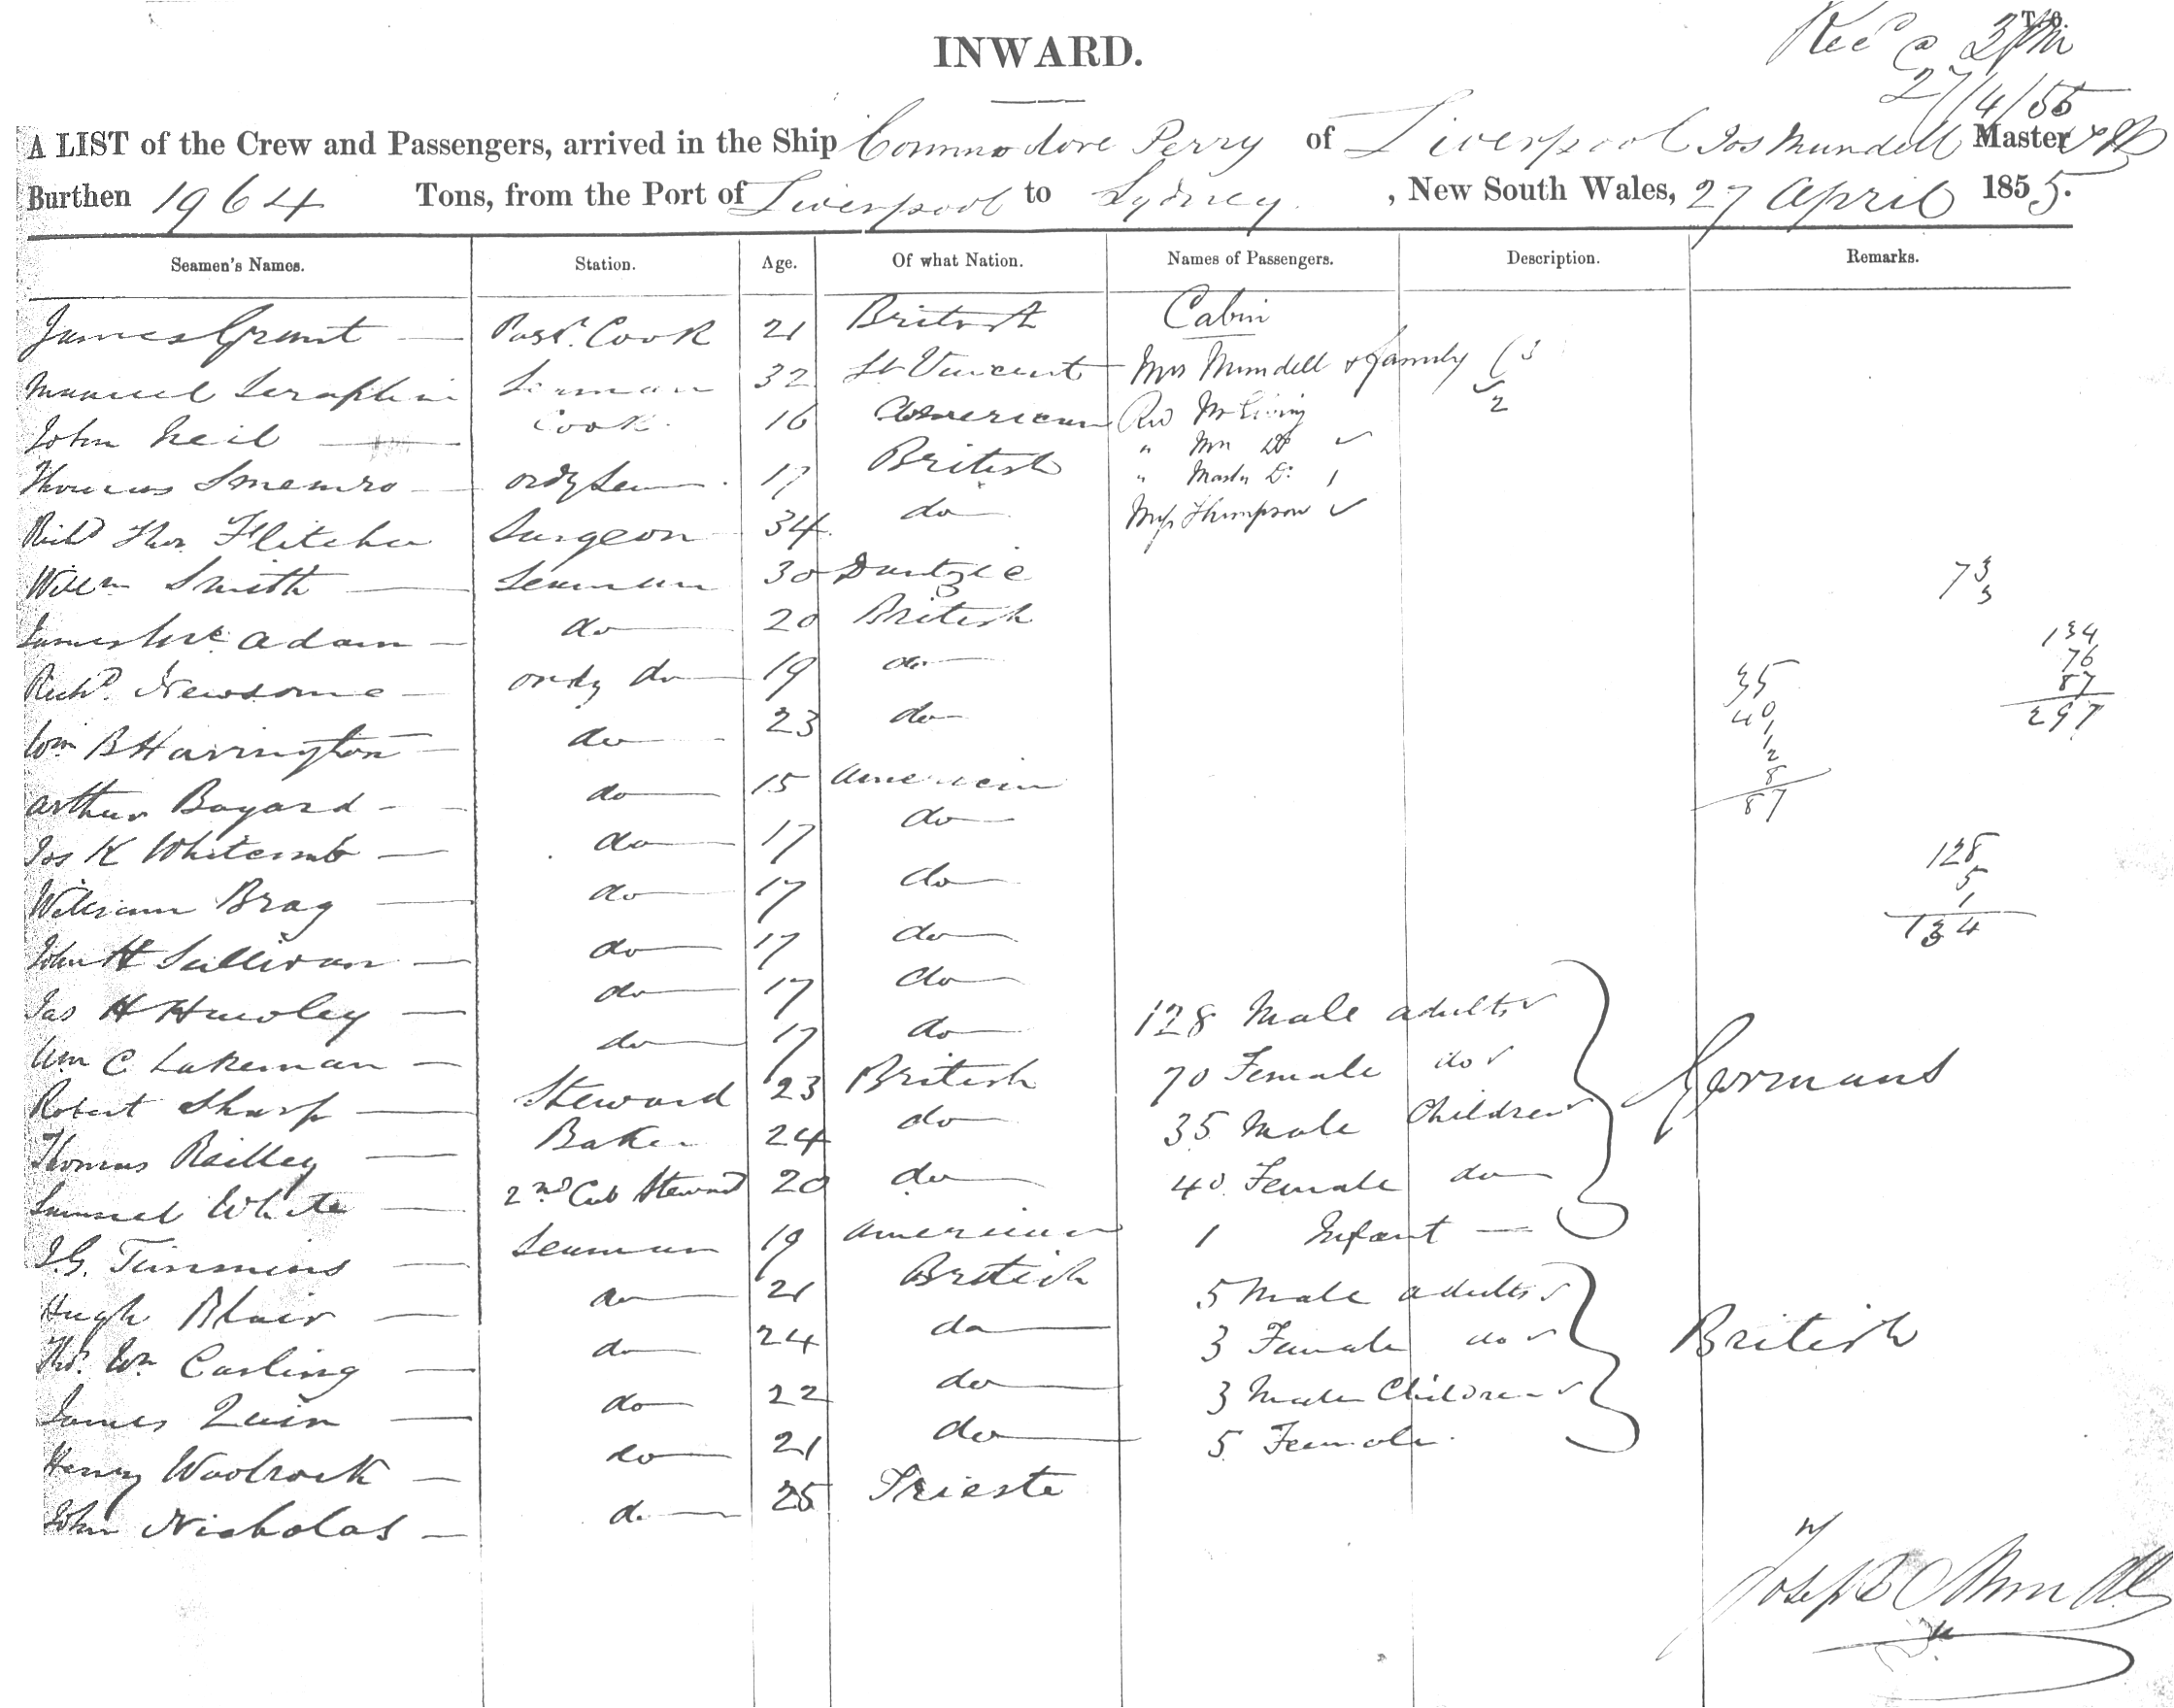 T. 6.
Recd @ 3 pm
27/4/55
INWARD.
A LIST of the Crew and Passengers, arrived in the Ship Commodore Perry of Liverpool Jos Mundell Master
Burthen 1964 Tons, from the Port of Liverpool to Sydney , New South Wales, 27 April 1855.
Seamen's Names. Station. Age. Of what Nation. Names of Passengers. Description. Remarks.
James Grant — Passr. Cook 21 British Cabin
Manuel Seraphin Seaman 32 St Vincent Mrs Mundell & family (3
John Neil — Cook 16 American Rev Mr 2
" Mrs Do
Thomas — ordy Sea 17 British " Master Do 1
Richd Thos Flitcher Surgeon 34 do Miss Thompson
Willm Smith — Seaman 30 Dantzic 73
3
James Mc Adam — do 20 British 134
76
Richd. Newsome — ordy do 19 do 35 87
40 297
Wm B Harrington — do 23 do 1
12
8
Arthur Bayard — do 15 American 87
Jos K Whitcomb — do 17 do 128
William Brag — do 17 do 5
1
John H Sullivan — do 17 do 134
Jas H Hawley — do 17 do 128 Male adults
Wm C Lakeman — do 17 do 70 Female do Germans
Robert Sharp — Steward 23 British 35 Male Children
Thomas Reilley — Baker 24 do 40 Female do
Samuel White — 2nd Cab Steward 20 do 1 Infant —
J.G. Timmins — Seaman 19 American 5 Male adults
Hugh Blair — do 21 British 3 Female do British
Thos. Wm Carling — do 24 do 3 Male Children
James Quin — do 22 do 5 Female
Henry Woolcock — do 21 do
John Nicholas — do 25 Trieste
Joseph Mundell